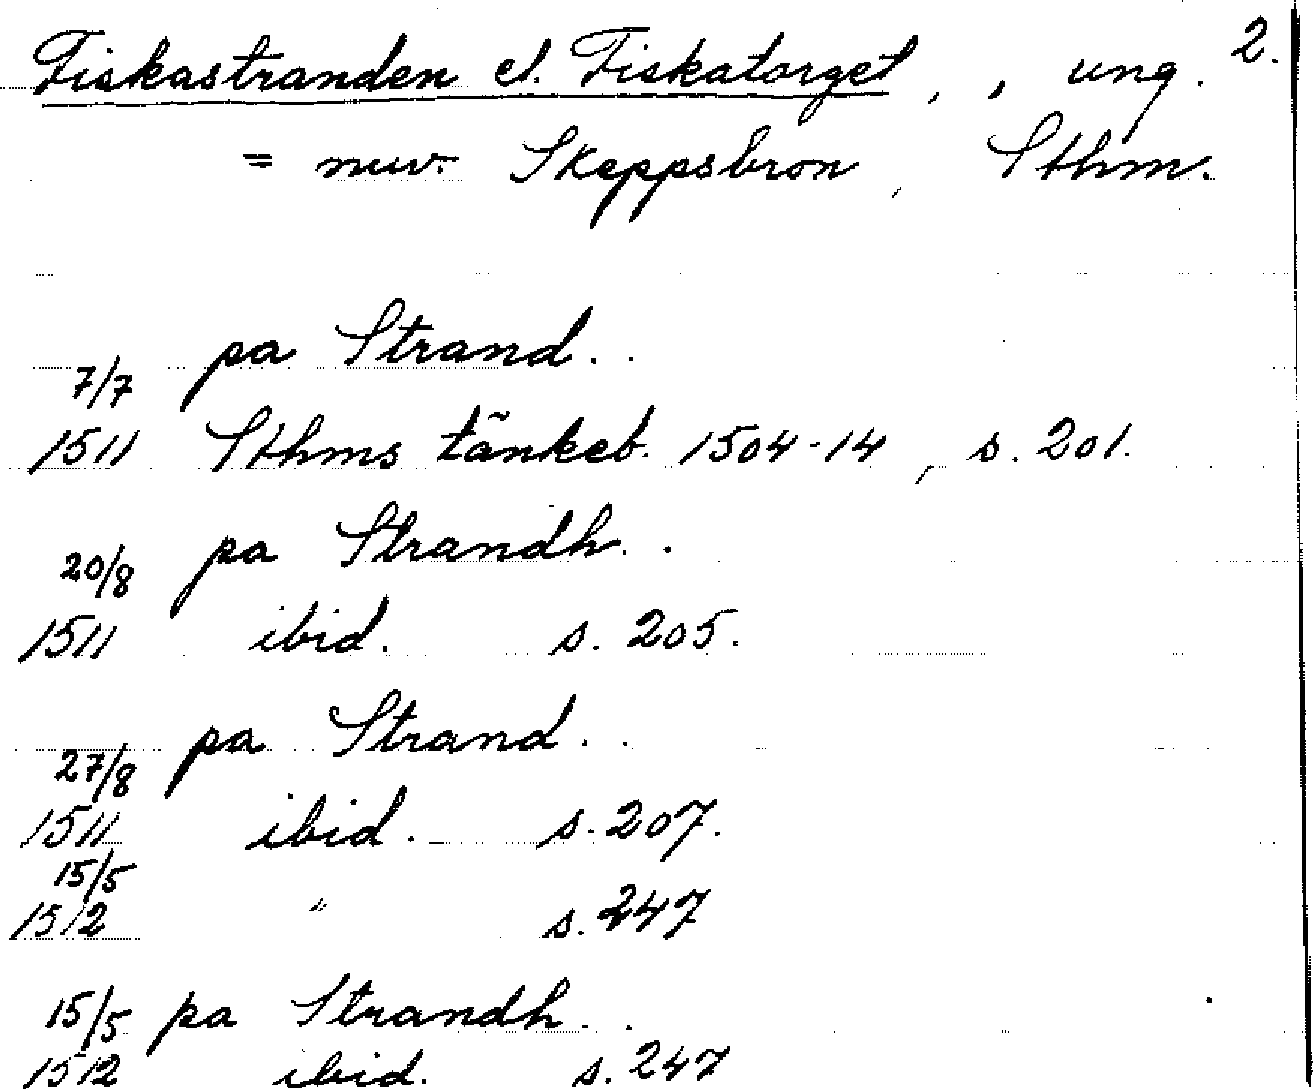 2.
Fiskastranden el. Fiskatorget, , ung.
= nuv. Skeppsbron, Sthm.
pa Strand..
7/7
1511 Sthms tänkeb. 1504-14, s. 201.
pa Strandh..
20/8
1511 ibid. s. 205.
pa Strand..
27/8
1511 ibid. s. 207.
15/5
1512 " s. 247
15/5 pa Strandh..
1512 ibid. s. 247